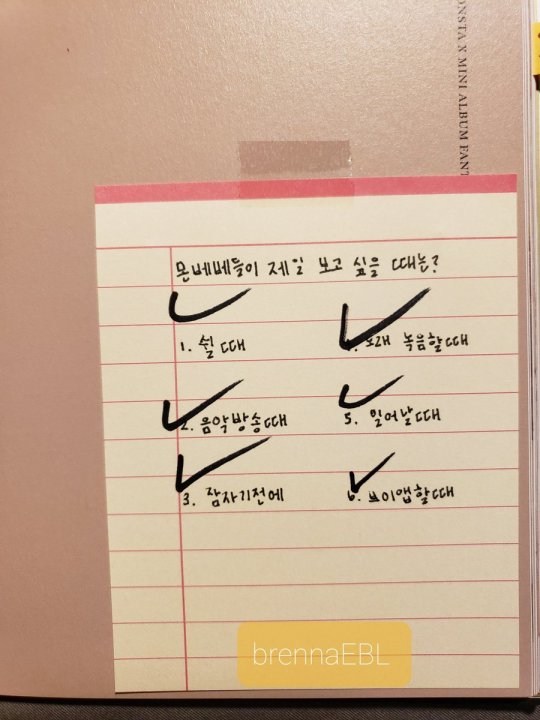 ONSTA X MINI ALBUM FANT
몬베베들이 제일 보고 싶을 때는?
1. 쉴 때
2. 음악방송때
3. 잠자기전에
4. 노래 녹음할때
5. 일어날때
6. 브이앱할때
brennaEBL